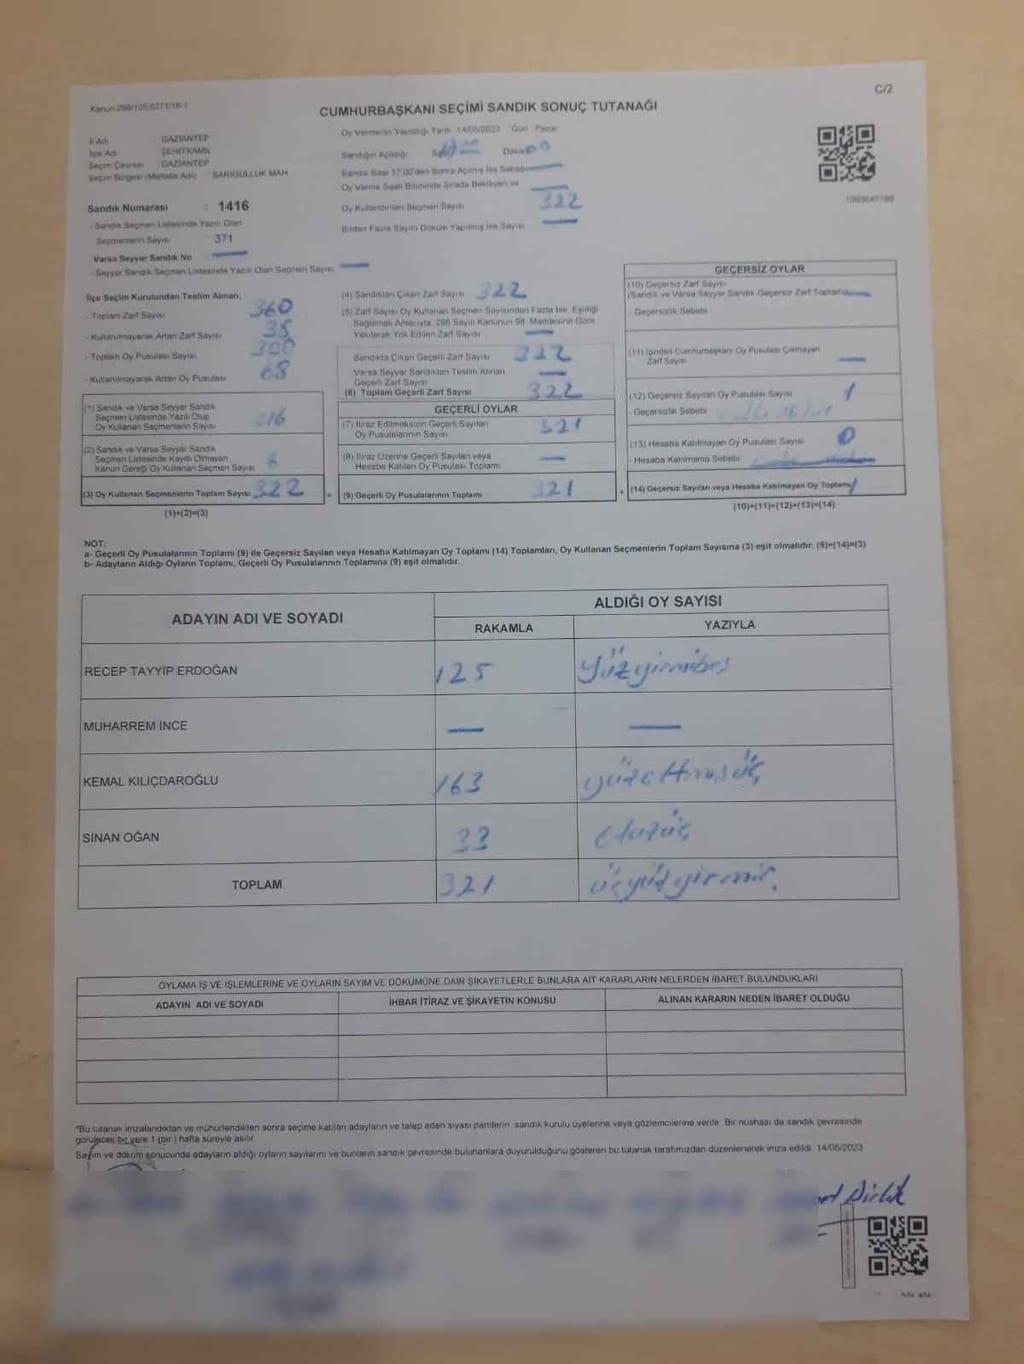 C/2
Kanun:298/105,6271/18-1
CUMHURBAŞKANI SEÇİMİ SANDIK SONUÇ TUTANAĞI
İl Adı : GAZİANTEP
İlçe Adı : ŞEHİTKAMİL
Seçim Çevresi : GAZİANTEP
Seçim Bölgesi (Mahalle Adı) : SARIGÜLLÜK MAH.
Sandık Numarası : 1416
- Sandık Seçmen Listesinde Yazılı Olan
Seçmenlerin Sayısı 371
Varsa Seyyar Sandık No
- Seyyar Sandık Seçmen Listesinde Yazılı Olan Seçmen Sayısı
Oy Vermenin Yapıldığı Tarih 14/05/2023 Gün : Pazar
Sandığın Açıldığı
Sandık Saat 17:00'den Sonra Açılmış İse Sebebi
Oy Verme Saati Bitiminde Sırada Bekleyen ve
Oy Kullandırılan Seçmen Sayısı 322
Birden Fazla Sayım Döküm Yapılmış İse Sayısı
İlçe Seçim Kurulundan Teslim Alınan;
- Toplam Zarf Sayısı 360
- Kullanılmayarak Artan Zarf Sayısı 38
- Toplam Oy Pusulası Sayısı
- Kullanılmayarak Artan Oy Pusulası 68
(1) Sandık ve Varsa Seyyar Sandık
Seçmen Listesinde Yazılı Olup
Oy Kullanan Seçmenlerin Sayısı 316
(2) Sandık ve Varsa Seyyar Sandık
Seçmen Listesinde Kayıtlı Olmayan
Kanun Gereği Oy Kullanan Seçmen Sayısı 6
(3) Oy Kullanan Seçmenlerin Toplam Sayısı 322
(1)+(2)=(3)
(4) Sandıktan Çıkan Zarf Sayısı 322
(5) Zarf Sayısı Oy Kullanan Seçmen Sayısından Fazla İse, Eşitliği
Sağlamak Amacıyla, 298 Sayılı Kanunun 98. Maddesine Göre
Yakılarak Yok Edilen Zarf Sayısı
Sandıkta Çıkan Geçerli Zarf Sayısı 322
Varsa Seyyar Sandıktan Teslim Alınan
Geçerli Zarf Sayısı
(6) Toplam Geçerli Zarf Sayısı 322
GEÇERLİ OYLAR
(7) İtiraz Edilmeksizin Geçerli Sayılan
Oy Pusulalarının Sayısı 321
(8) İtiraz Üzerine Geçerli Sayılan veya
Hesaba Katılan Oy Pusulası Toplamı
= (9) Geçerli Oy Pusulalarının Toplamı 321 +
GEÇERSİZ OYLAR
(10) Geçersiz Zarf Sayısı
(Sandık ve Varsa Seyyar Sandık Geçersiz Zarf Toplamı)
- Geçersizlik Sebebi
(11) İçinden Cumhurbaşkanı Oy Pusulası Çıkmayan
Zarf Sayısı
(12) Geçersiz Sayılan Oy Pusulası Sayısı 1
- Geçersizlik Sebebi
(13) Hesaba Katılmayan Oy Pusulası Sayısı 0
- Hesaba Katılmama Sebebi
(14) Geçersiz Sayılan veya Hesaba Katılmayan Oy Toplamı 1
(10)+(11)+(12)+(13)=(14)
NOT:
a- Geçerli Oy Pusulalarının Toplamı (9) ile Geçersiz Sayılan veya Hesaba Katılmayan Oy Toplamı (14) Toplamları, Oy Kullanan Seçmenlerin Toplam Sayısına (3) eşit olmalıdır. (9)+(14)=(3)
b- Adayların Aldığı Oyların Toplamı, Geçerli Oy Pusulalarının Toplamına (9) eşit olmalıdır.
ADAYIN ADI VE SOYADI
ALDIĞI OY SAYISI
RAKAMLA YAZIYLA
RECEP TAYYİP ERDOĞAN 125 yüzyirmibeş
MUHARREM İNCE — —
KEMAL KILIÇDAROĞLU 163 yüzaltmışüç
SİNAN OĞAN 33 otuzüç
TOPLAM 321 üçyüzyirmi
OYLAMA İŞ VE İŞLEMLERİNE VE OYLARIN SAYIM VE DÖKÜMÜNE DAİR ŞİKAYETLERLE BUNLARA AİT KARARLARIN NELERDEN İBARET BULUNDUKLARI
ADAYIN ADI VE SOYADI İHBAR İTİRAZ VE ŞİKAYETİN KONUSU ALINAN KARARIN NEDEN İBARET OLDUĞU
*Bu tutanak imzalandıktan ve mühürlendikten sonra seçime katılan adayların ve talep eden siyasi partilerin sandık kurulu üyelerine veya gözlemcilerine verilir. Bir nüshası da sandık çevresinde
görülecek bir yere 1 (bir ) hafta süreyle asılır
Sayım ve döküm sonucunda adayların aldığı oyların sayılarını ve bunların sandık çevresinde bulunanlara duyurulduğunu gösteren bu tutanak tarafımızdan düzenlenerek imza edildi. 14/05/2023